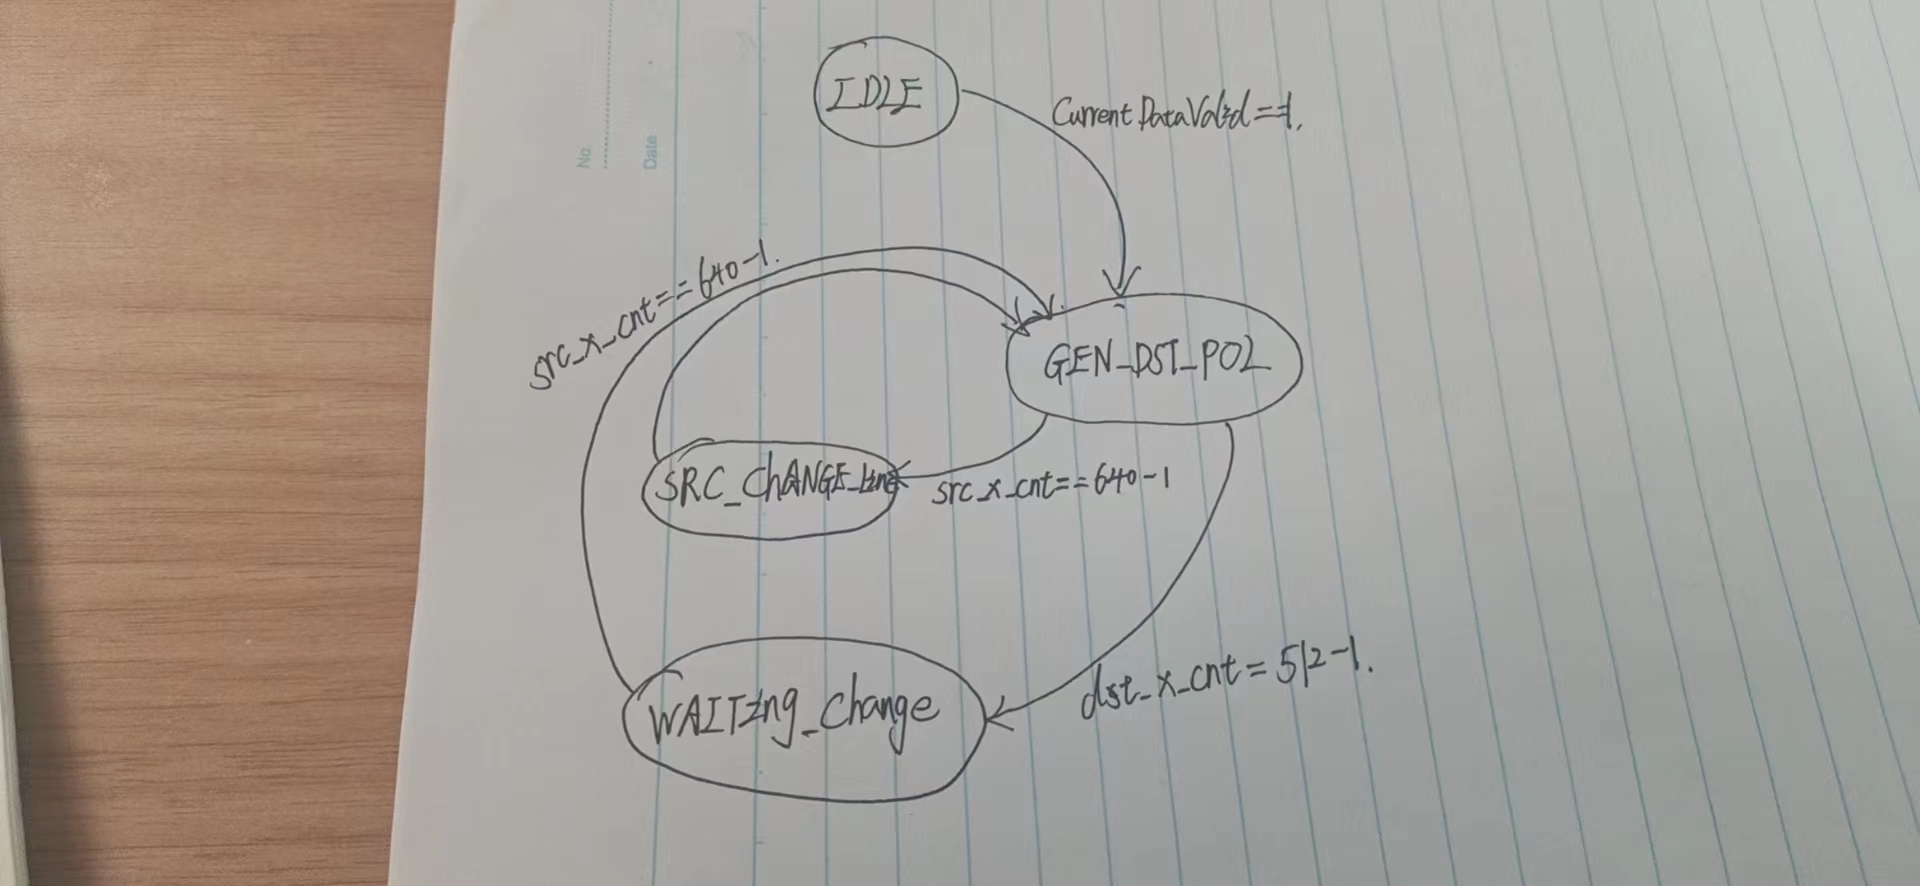 IDLE
CurrentDataValid==1.
No.
Date
src_x_cnt==640-1.
GEN_DST_POL
SRC_ChANGE_Line
src_x_cnt==640-1
WAITIng_Change
dst_x_cnt=512-1.